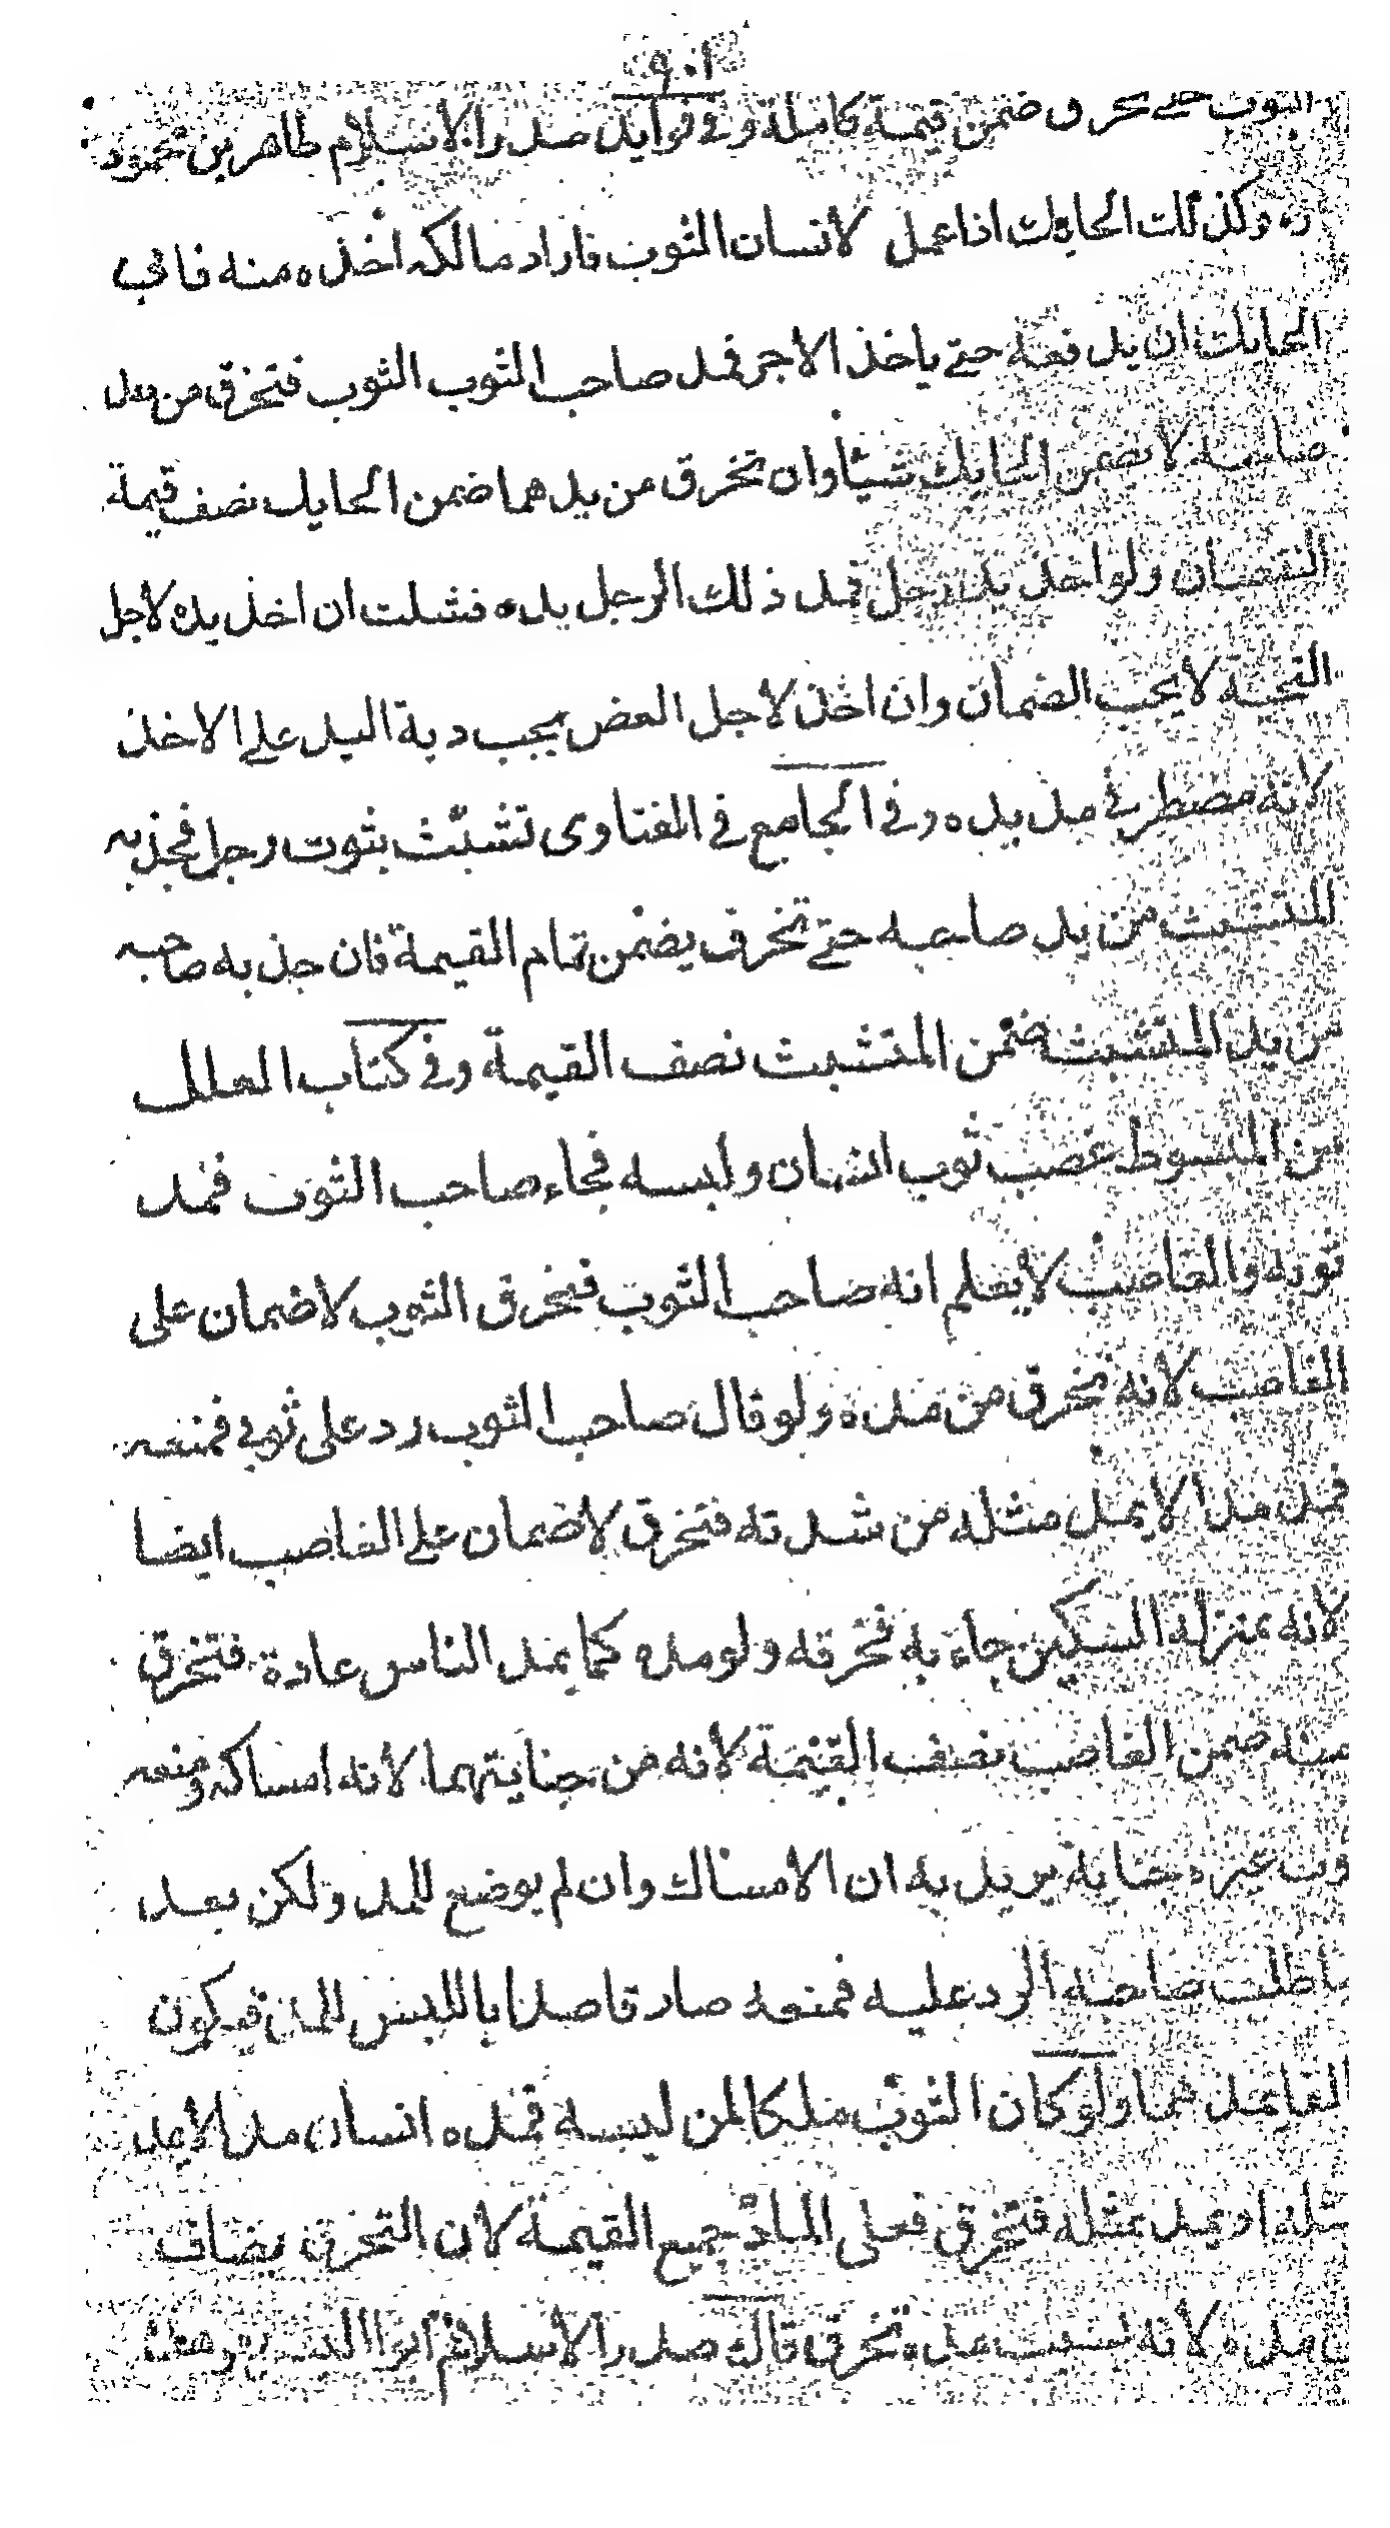 ٩٠١
الثوب حتى تخرق ضمن قيمة كاملة وفي فوايد صدر الاسلام طاهر بن محمود
ره وكذلك الحايك اذا عمل لانسان الثوب فاراد مالكه اخذه منه فابى
الحايك ان يدفعه حتى ياخذ الاجر فمد صاحب الثوب الثوب فتخرق من مد
صاحبه لا يضمن الحايك شيئا وان تخرق من يدهما ضمن الحايك نصف قيمة
النقصان ولو اخذ يد رجل فمد ذلك الرجل يده فشلت ان اخذ يده لاجل
التحية لا يجب الضمان وان اخذ لاجل العض يجب دية اليد على الاخذ
لانه مضطر في مد يده وفي الجامع في الفتاوى تشبث بثوب رجل فجذبه
المتشبث من يد صاحبه حتى تخرق يضمن تمام القيمة فان جذبه صاحبه
من يد المتشبث ضمن المتشبث نصف القيمة وفي كتاب العلل
من المبسوط غصب ثوب انسان ولبسه فجاء صاحب الثوب فمد
ثوبه والغاصب لا يعلم انه صاحب الثوب فتخرق الثوب لا ضمان على
الغاصب لانه تخرق من مده ولو قال صاحب الثوب رد على ثوبي فمنعه
فمد مدا لا يمد مثله من شدته فتخرق لا ضمان على الغاصب ايضا
لانه بمنزلة السكين جاء به فخرقه ولو مده كما يمد الناس عادة فتخرق
منه ضمن الغاصب نصف القيمة لانه من جنايتهما لانه امساكه ومنعه
ثوب غيره جناية يريد به ان الامساك وان لم يوضع للمد ولكن بعد
ما طلب صاحبه الرد عليه فمنعه صار قاصدا باللبس للمد فيكون
ولو كان الثوب ملكا لمن لبسه فمده انسان مدا لا يمد
مثله او يمد مثله فتخرق فعلى الماد جميع القيمة لان التخرق يضاف
مده لانه بسبب مده تخرق قال صدر الاسلام ابو اليسر